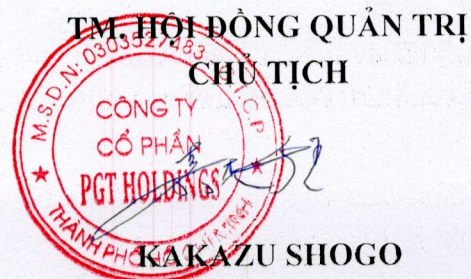 TM. HỘI ĐỒNG QUẢN TRỊ
CHỦ TỊCH
M.S.D.N: 0303527483 C.T.C.P
CÔNG TY
CỔ PHẦN
PGT HOLDINGS
THÀNH PHỐ HỒ
KAKAZU SHOGO